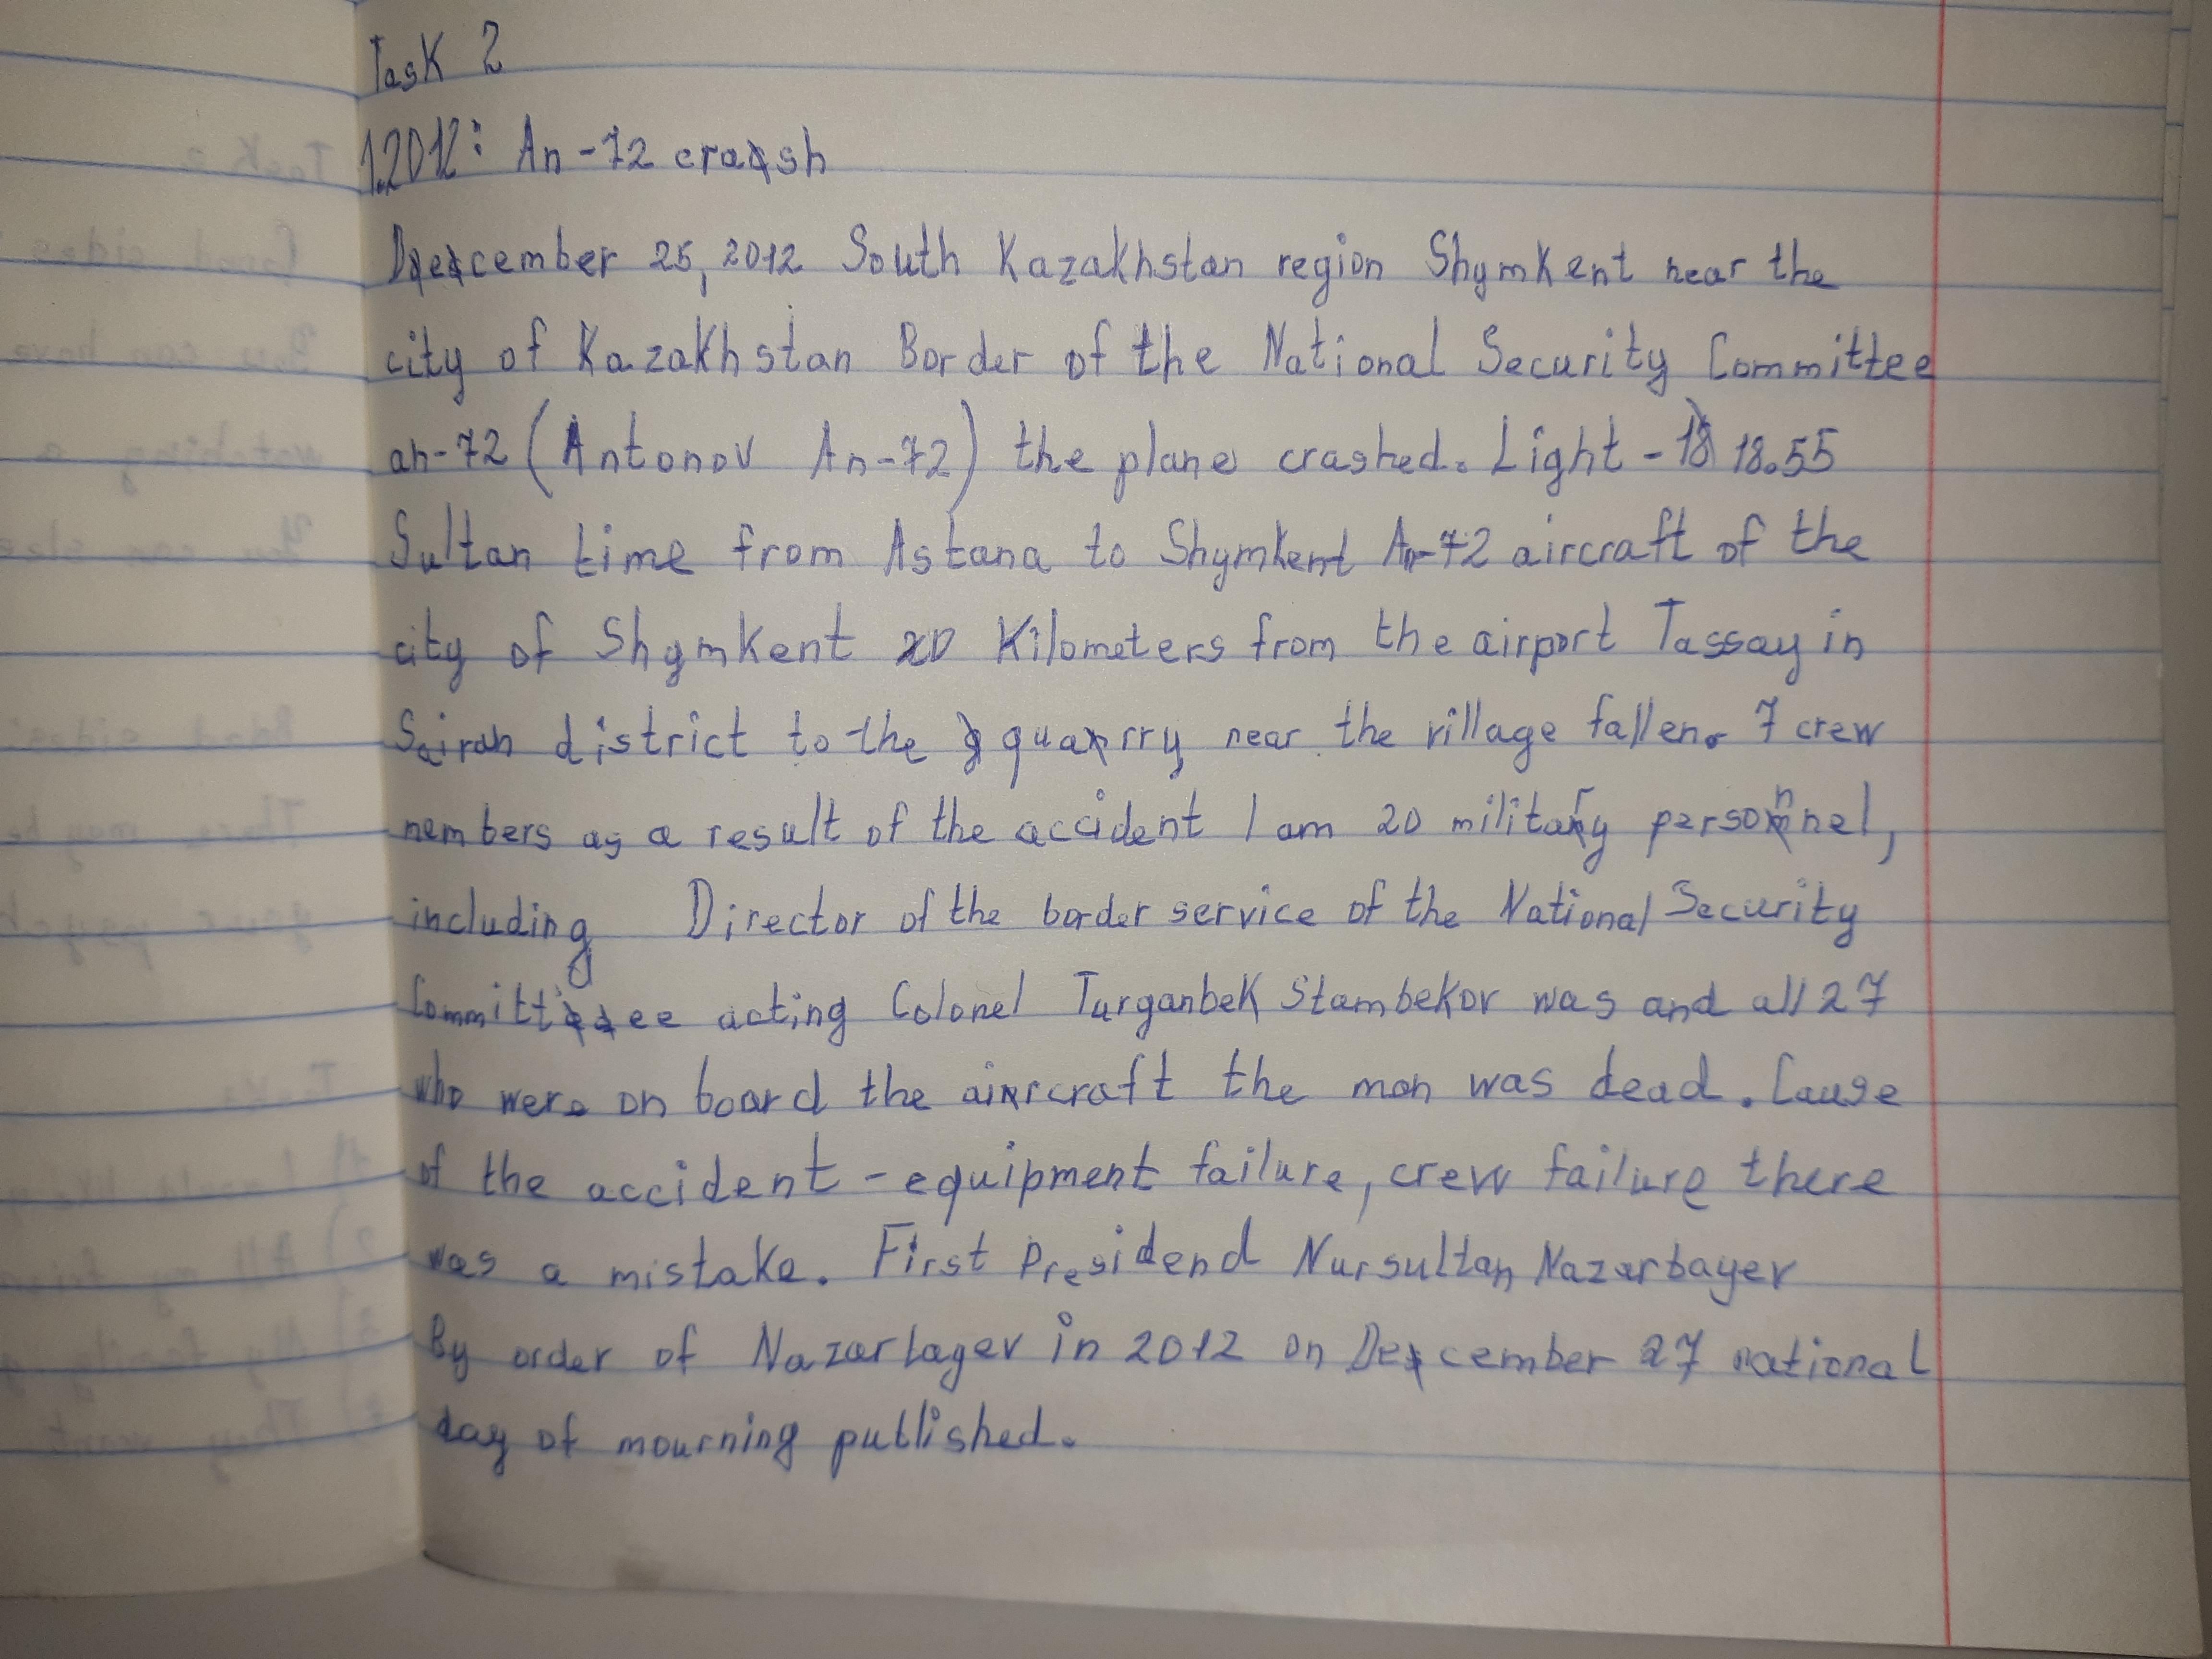 Task 2
1.2012: An-72 crash
December 25, 2012 South Kazakhstan region Shymkent near the
city of Kazakhstan Border of the National Security Committee
an-72 (Antonov An-72) the plane crashed. Light - 18.55
Sultan time from Astana to Shymkent An-72 aircraft of the
city of Shymkent 20 Kilometers from the airport Tassay in
Sairan district to the quarry near the village fallen. 7 crew
nembers as a result of the accident I am 20 military personnel,
including Director of the border service of the National Security
Committee acting Colonel Turganbek Stambekov was and all 27
who were on board the aircraft the man was dead. Cause
of the accident - equipment failure, crew failure there
was a mistake. First Presidend Nursultan Nazarbayev
By order of Nazarbayev in 2012 on December 27 national
day of mourning published.